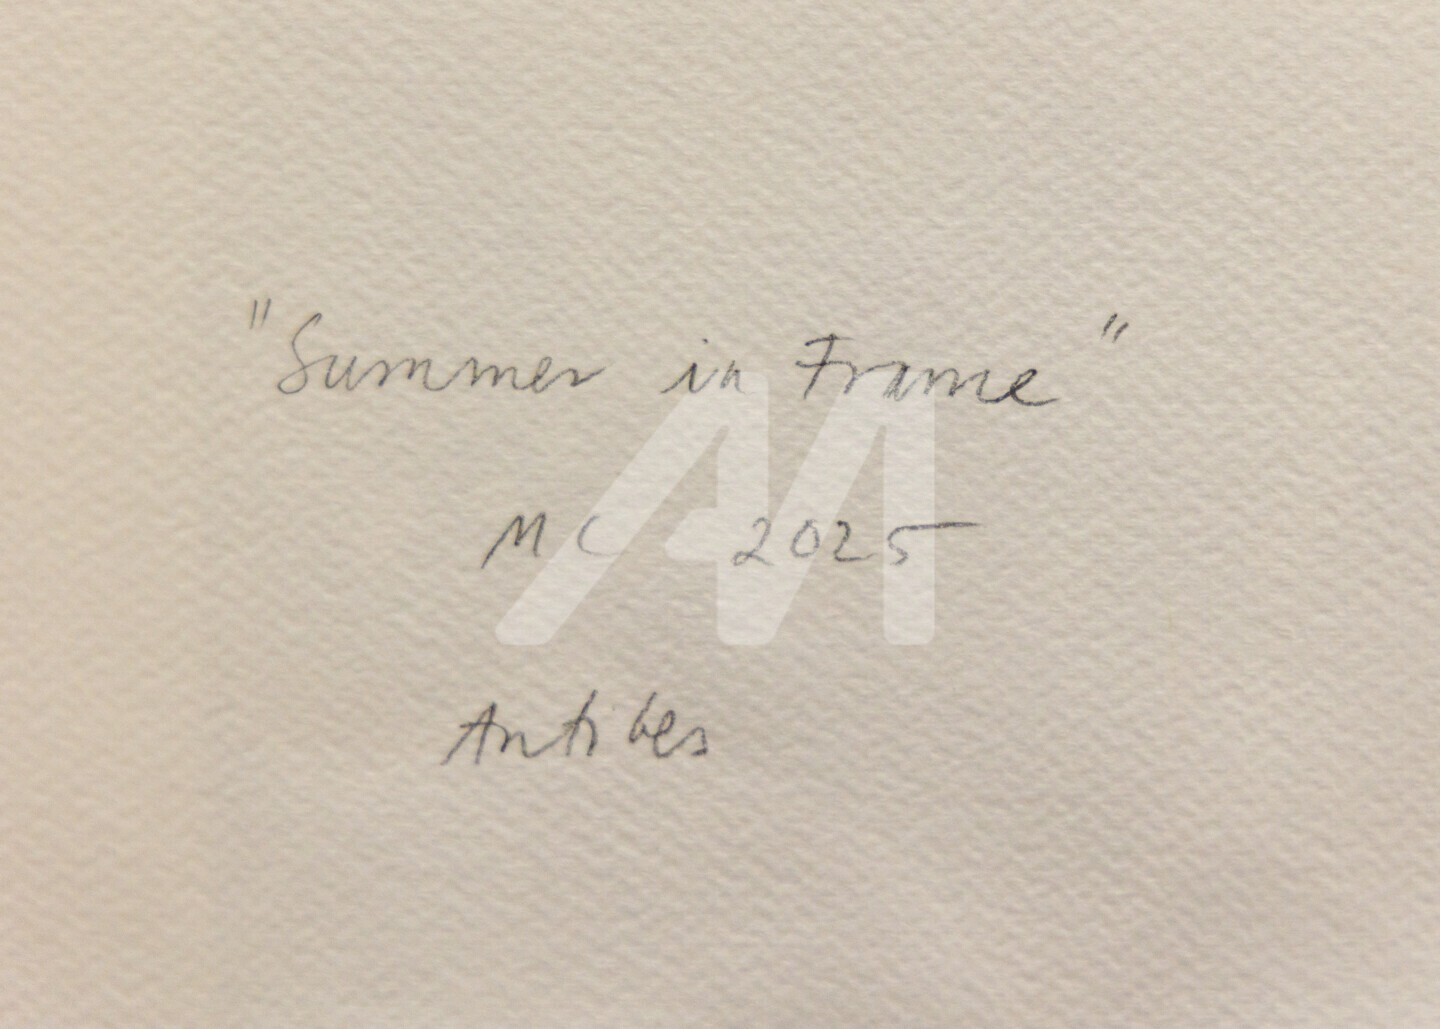 "Summer in Frame"
MC 2025
Antibes